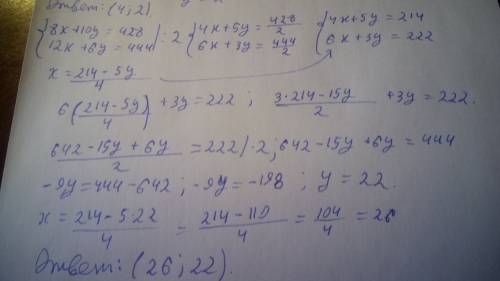 Ответ: (4;2)
{8x+10y=428 12x+6y=444 :2 {4x+5y=428/2 6x+3y=444/2 {4x+5y=214 6x+3y=222
x=(214-5y)/4
6((214-5y)/4)+3y=222; (3·214-15y)/2+3y=222.
(642-15y+6y)/2=222/·2; 642-15y+6y=444
-9y=444-642; -9y=-198; y=22.
x=(214-5·22)/4=(214-110)/4=104/4=26
Ответ: (26;22).